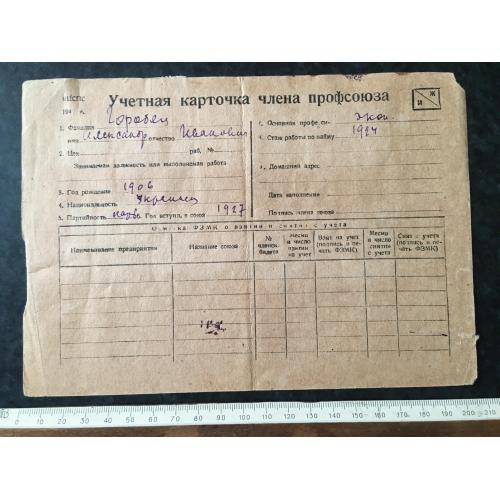 Учетная карточка члена профсоюза
194 г.
Ж
И
1. Фамилия Горовец
имя Александр отчество Иванович
2. Цех раб. №
Занимаемая должность или выполняемая работа
3. Год рождения 1906
4. Национальность украинец
5. Партийность Год вступл. в союз 1927
Основная профессия экон.
Стаж работы по найму 1924
Домашний адрес
Дата заполнения
Подпись члена союза
Отметка ФЗМК о взятии и снятии с учета
Наименование предприятия
Название союза
№ членск. билета
Месяц и число взятия на учет
Взят на учет (подпись и печать ФЗМК)
Месяц и число снятия с учета
Снят с учета (подпись и печать ФЗМК)
0 10 20 30 40 50 60 70 80 90 100 110 120 130 140 150 160 170 180 190 200 210